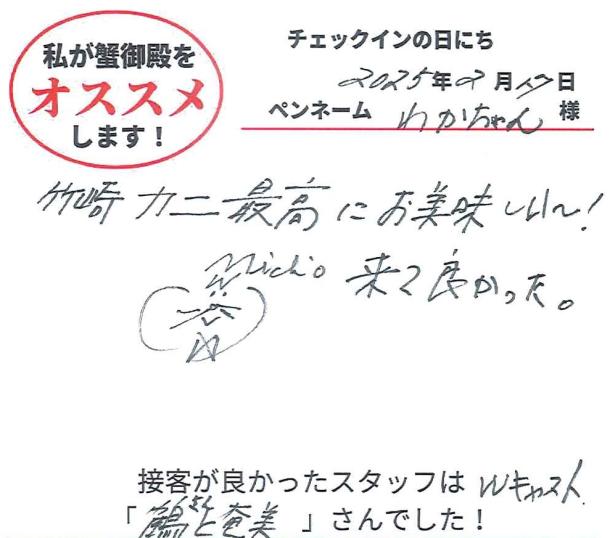 私が蟹御殿を
オススメ
します!
チェックインの日にち
2025年2月17日
ペンネーム わかちゃん 様
竹崎カニ最高にお美味しい〜!
Michio 来て良かった。
接客が良かったスタッフは Wキャスト
「鶴さんと奄美」さんでした!